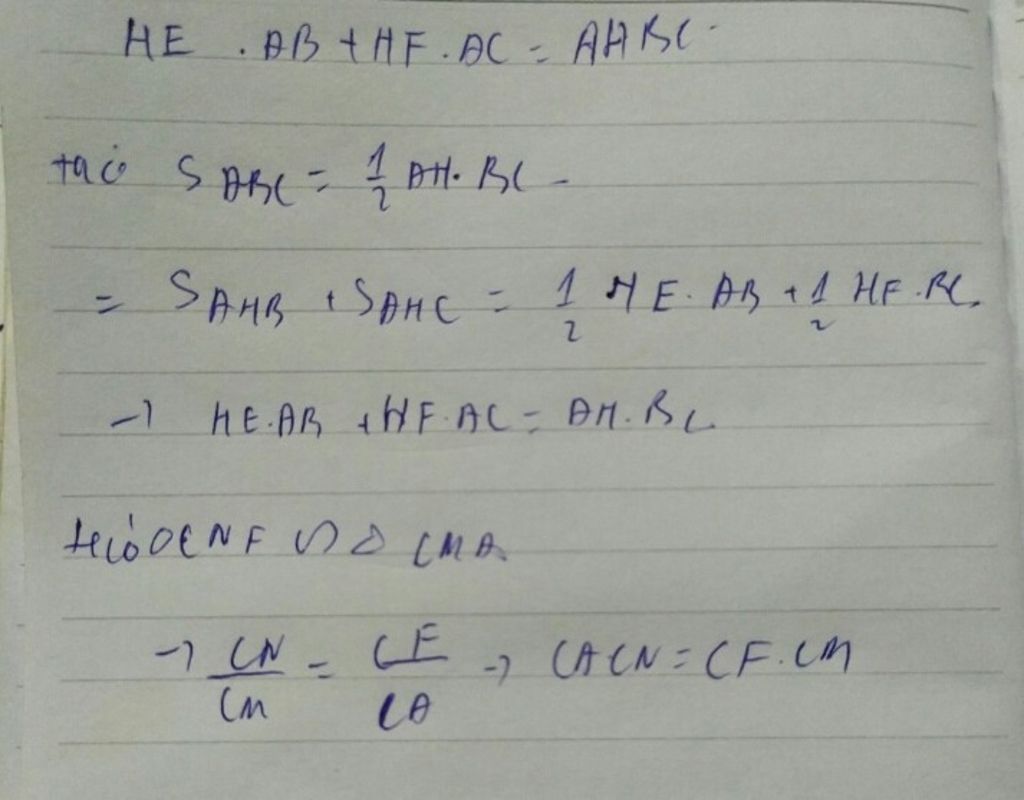 HE . AB + HF . AC = AHBC
ta có S ABC = 1/2 AH. BC
= S AHB + S AHC = 1/2 HE. AB + 1/2 HF. BC
→ HE.AB + HF.AC = AH.BC
CNF ∽ Δ CMA
→ CN/CM = CF/CA → CACN = CF.CM